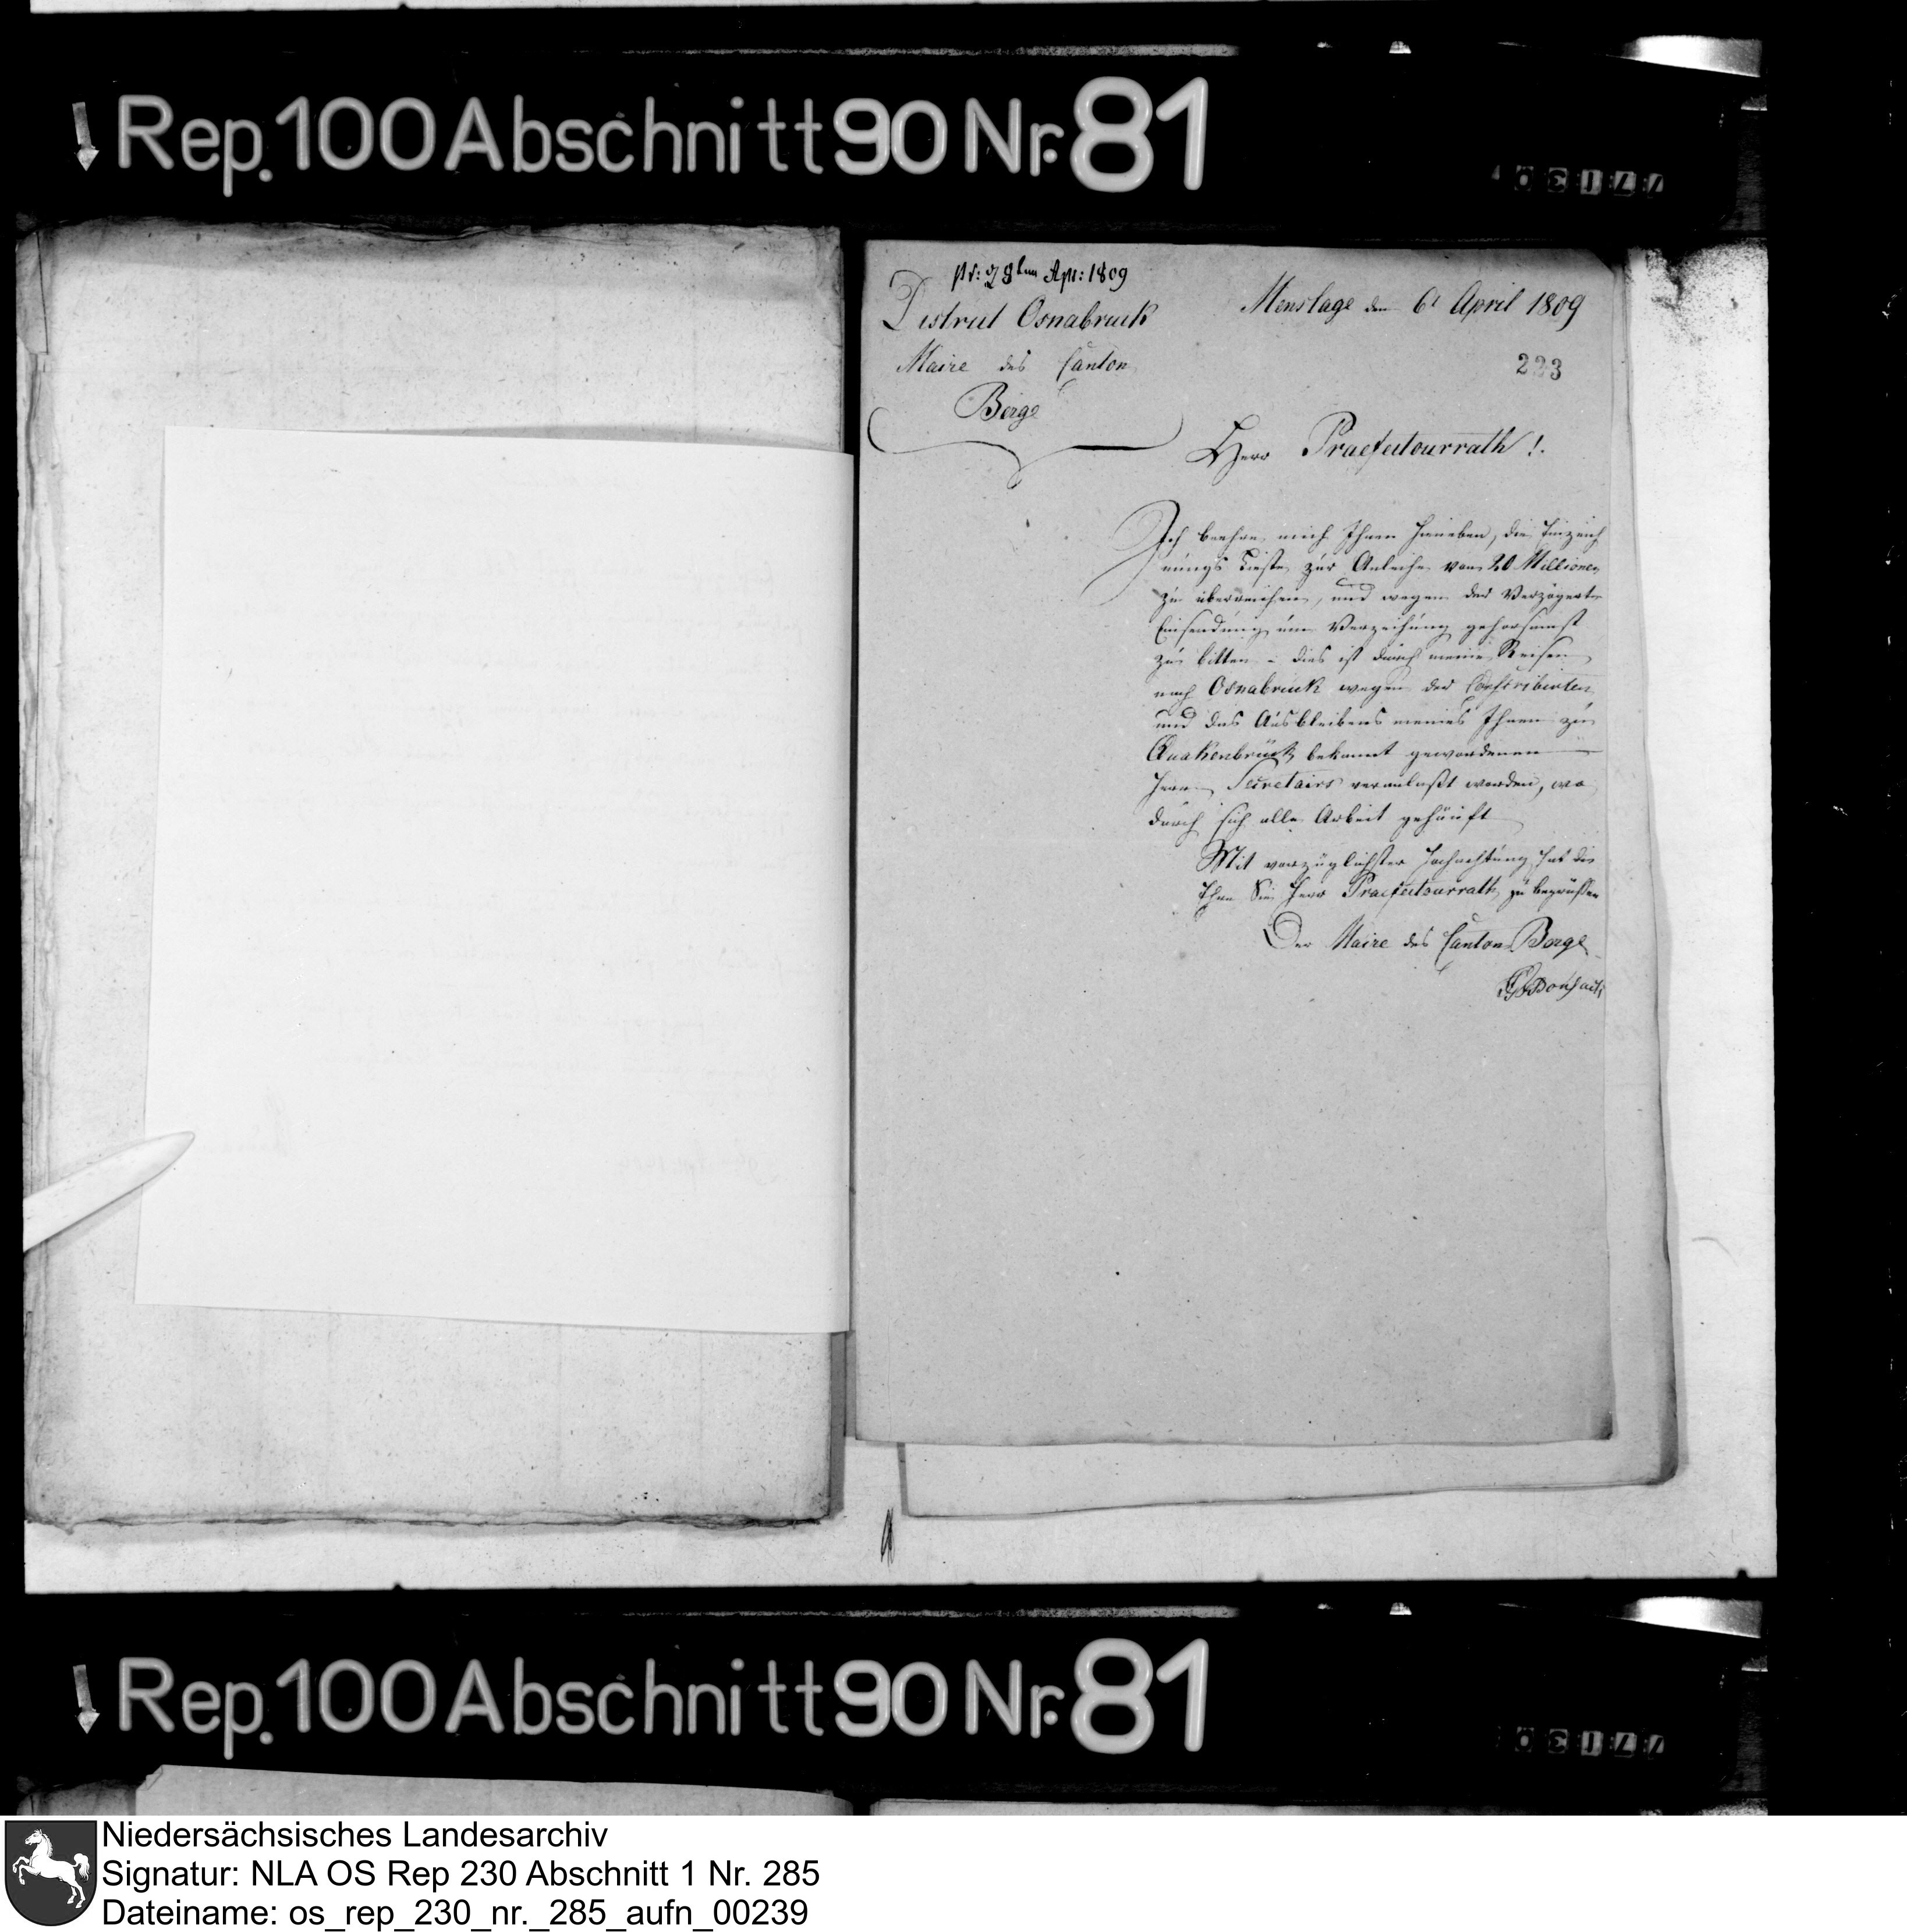 Rep. 100 Abschnitt 90 Nr. 81
pr: 28ten Apr: 1809
District Osnabruck
Menslage den 6t April 1809
Maire des Canton
223
Berge
Herr Praefectourrath!
Ich beehre mich Ihnen hieneben, die Einzeich
nungs Liste zur Anleihe von 20 Millionen
zu überreichen, und wegen der Verzögerten
Einsendung um Verzeihung gehorsamst
zu bitten: dies ist durch meine Reisen
nach Osnabruck wegen der Conscribirten
und des Ausbleibens meines Ihnen zu
Quakenbrück bekannt gewordenen
Herrn Secretairs veranlaßt worden, wo
durch sich alle Arbeit gehäuft
Mit vorzüglichster Hochachtung hat die
Ehre Sie Herr Praefectourrath zu begrüßen
Der Maire des Canton Berge
Rep. 100 Abschnitt 90 Nr. 81
Niedersächsisches Landesarchiv
Signatur: NLA OS Rep 230 Abschnitt 1 Nr. 285
Dateiname: os_rep_230_nr._285_aufn_00239